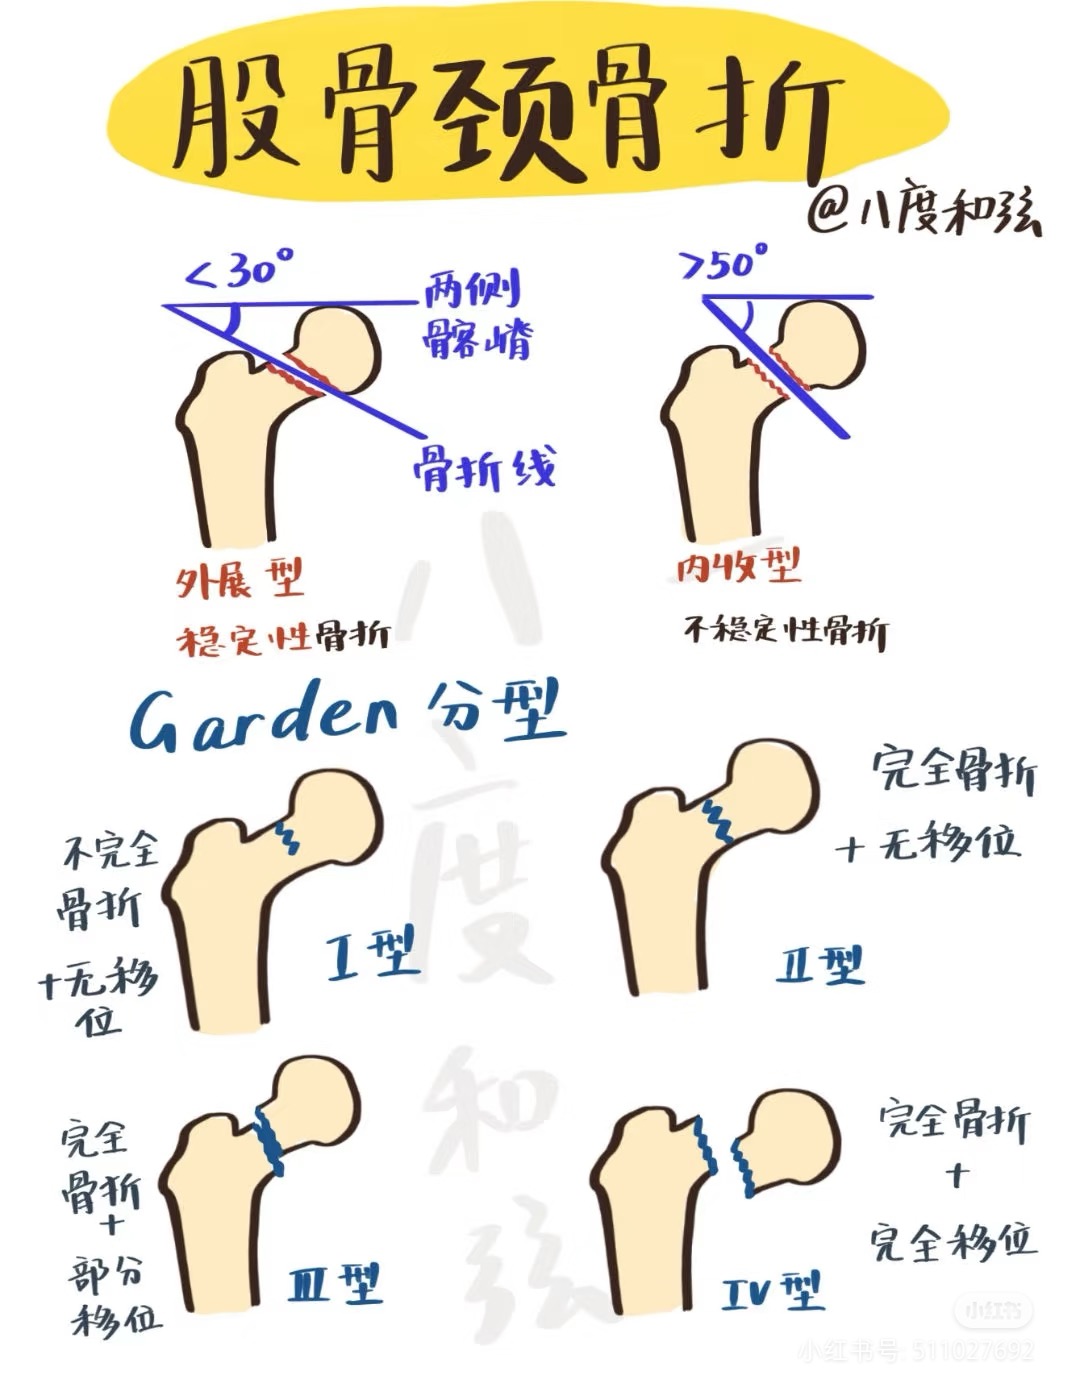 股骨颈骨折
@八度和弦
<30°
两侧
骨髂嵴
骨折线
>50°
外展型
稳定性骨折
内收型
不稳定性骨折
Garden分型
不完全
骨折
+无移
位
I型
完全骨折
+无移位
II型
完全
骨折
+
部分
移位
III型
完全骨折
+
完全移位
IV型
八度和弦
小红书
小红书号: 511027692